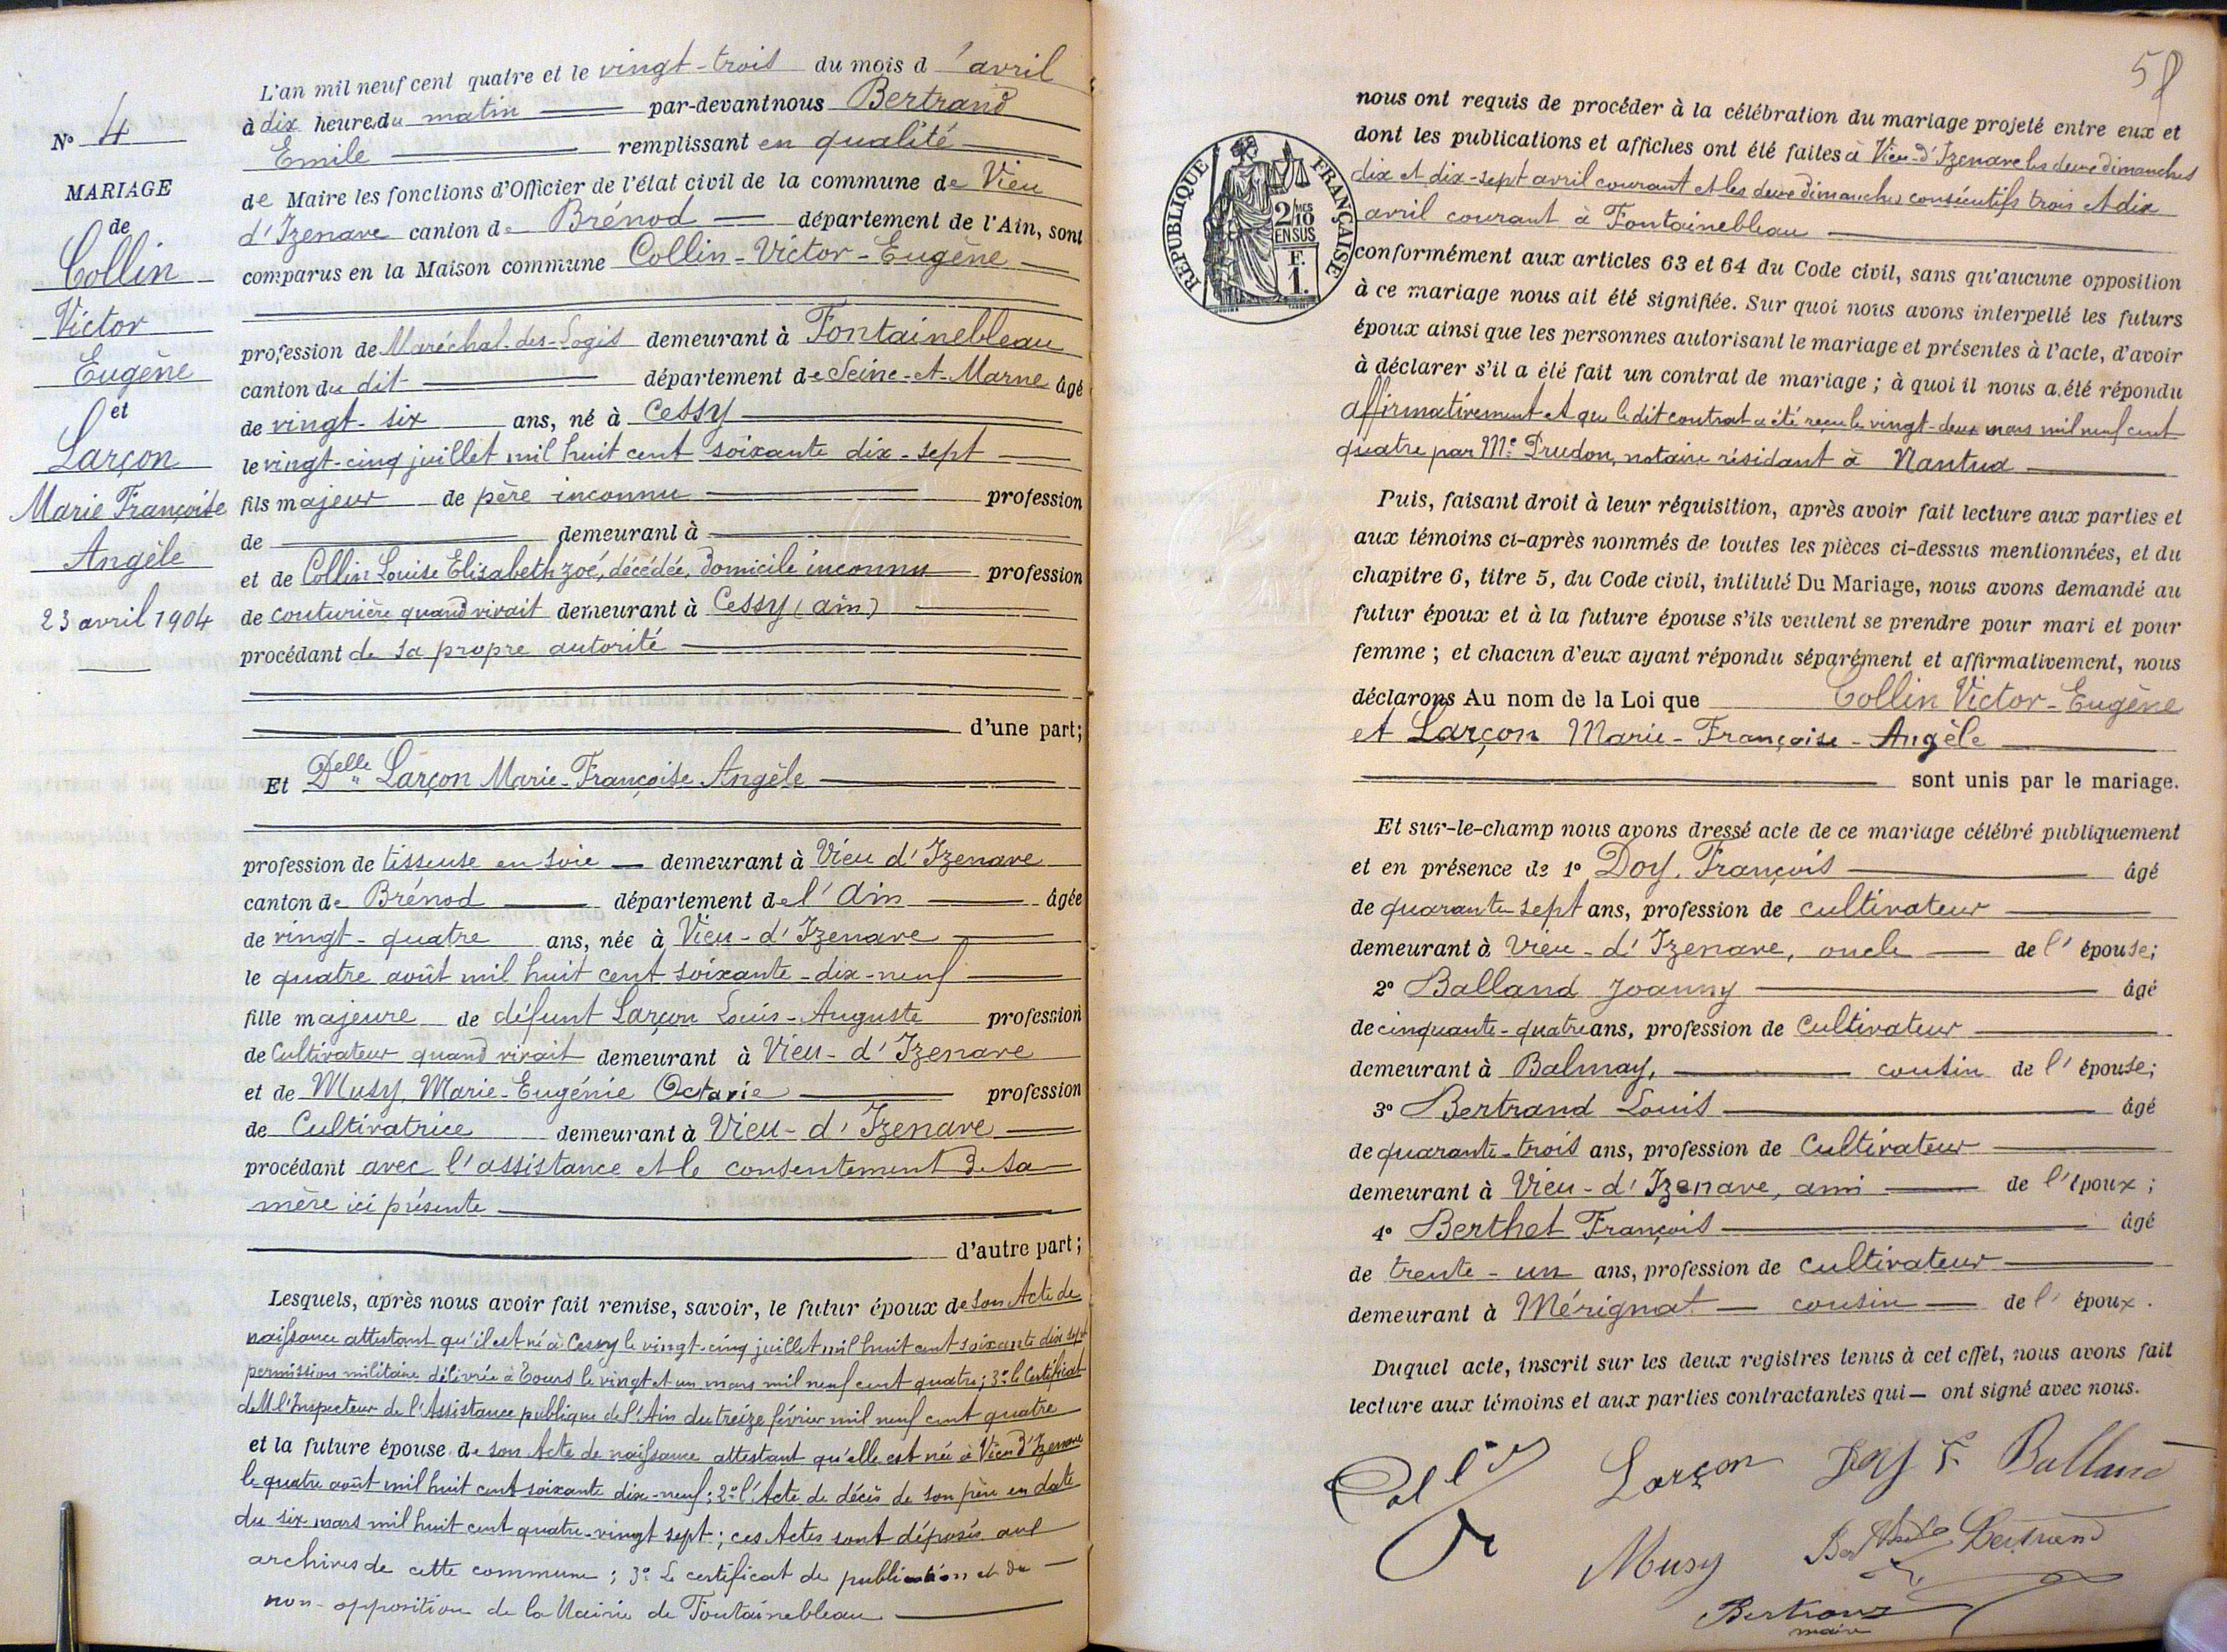 L'an mil neuf cent quatre et le vingt-trois du mois d'avril
à dix heures du matin par-devant nous Bertrand
Emile remplissant en qualité
de Maire les fonctions d'Officier de l'état civil de la commune de Vieu
d'Izenave canton de Brénod département de l'Ain, sont
comparus en la Maison commune Collin-Victor-Eugène
profession de Maréchal-des-Logis demeurant à Fontainebleau
canton du dit département de Seine-et-Marne âgé
de vingt-six ans, né à Cessy
le vingt-cinq juillet mil huit cent soixante dix-sept
fils majeur de père inconnu profession
de demeurant à
et de Collin Louise Elisabeth Zoé, décédée, domicile inconnu profession
de couturière quand vivait demeurant à Cessy (Ain)
procédant de sa propre autorité
d'une part;
Et Delle Larçon Marie-Françoise Angèle
profession de tisseuse en soie demeurant à Vieu d'Izenave
canton de Brénod département de l'Ain âgée
de vingt-quatre ans, née à Vieu-d'Izenave
le quatre août mil huit cent soixante-dix-neuf
fille majeure de défunt Larçon Louis-Auguste profession
de Cultivateur quand vivait demeurant à Vieu-d'Izenave
et de Musy, Marie-Eugénie Octavie profession
de Cultivatrice demeurant à Vieu-d'Izenave
procédant avec l'assistance et le consentement de sa
mère ici présente
d'autre part;
Lesquels, après nous avoir fait remise, savoir, le futur époux de son Acte de
naissance attestant qu'il est né à Cessy le vingt-cinq juillet mil huit cent soixante dix sept
permission militaire délivrée à Tours le vingt et un mars mil neuf cent quatre; 3º le Certificat
de M l'Inspecteur de l'Assistance publique de l'Ain du treize février mil neuf cent quatre
et la future épouse de son Acte de naissance attestant qu'elle est née à Vieu d'Izenave
le quatre août mil huit cent soixante dix-neuf; 2º l'Acte de décès de son père en date
du six mars mil huit cent quatre-vingt sept; ces Actes sont déposés aux
archives de cette commune; 3º Le certificat de publication et de
non-opposition de la Mairie de Fontainebleau
Nº 4
MARIAGE
de
Collin
Victor
Eugène
et
Larçon
Marie Françoise
Angèle
23 avril 1904
58
RÉPUBLIQUE FRANÇAISE
2/10 MES
EN SUS
F.
1.
nous ont requis de procéder à la célébration du mariage projeté entre eux et
dont les publications et affiches ont été faites à Vieu-d'Izenave les deux dimanches
dix et dix-sept avril courant et les deux dimanches consécutifs trois et dix
avril courant à Fontainebleau
conformément aux articles 63 et 64 du Code civil, sans qu'aucune opposition
à ce mariage nous ait été signifiée. Sur quoi nous avons interpellé les futurs
époux ainsi que les personnes autorisant le mariage et présentes à l'acte, d'avoir
à déclarer s'il a été fait un contrat de mariage; à quoi il nous a été répondu
affirmativement et que le dit contrat a été reçu le vingt-deux mars mil neuf cent
quatre par Me Prudon, notaire résidant à Nantua
Puis, faisant droit à leur réquisition, après avoir fait lecture aux parties et
aux témoins ci-après nommés de toutes les pièces ci-dessus mentionnées, et du
chapitre 6, titre 5, du Code civil, intitulé Du Mariage, nous avons demandé au
futur époux et à la future épouse s'ils veulent se prendre pour mari et pour
femme; et chacun d'eux ayant répondu séparément et affirmativement, nous
déclarons Au nom de la Loi que Collin Victor-Eugène
et Larçon Marie-Françoise-Angèle
sont unis par le mariage.
Et sur-le-champ nous avons dressé acte de ce mariage célébré publiquement
et en présence de 1º Doy, François âgé
de quarante sept ans, profession de cultivateur
demeurant à Vieu-d'Izenave, oncle de l'épouse;
2º Balland Joanny âgé
de cinquante-quatre ans, profession de Cultivateur
demeurant à Balmay, cousin de l'épouse;
3º Bertrand Louis âgé
de quarante-trois ans, profession de Cultivateur
demeurant à Vieu-d'Izenave, ami de l'époux;
4º Berthet François âgé
de trente-un ans, profession de Cultivateur
demeurant à Mérignat cousin de l'époux.
Duquel acte, inscrit sur les deux registres tenus à cet effet, nous avons fait
lecture aux témoins et aux parties contractantes qui ont signé avec nous.
Larçon Doy F. Balland
Musy Bertrand
Bertrand
maire